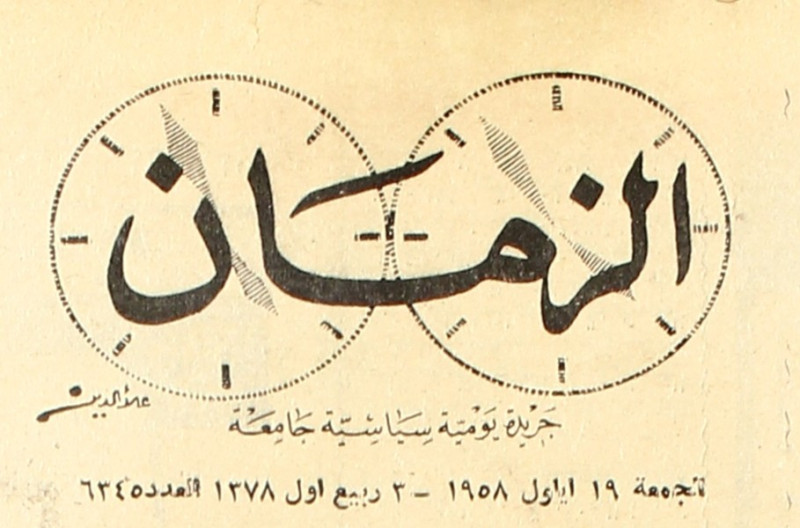 الزمان
علاء الدين
جَريدة يَوميّة سِيَاسِيّة جَامِعَة
الجمعة ١٩ ايلول ١٩٥٨ – ٣ ربيع اول ١٣٧٨ العدد ٦٣٤٥